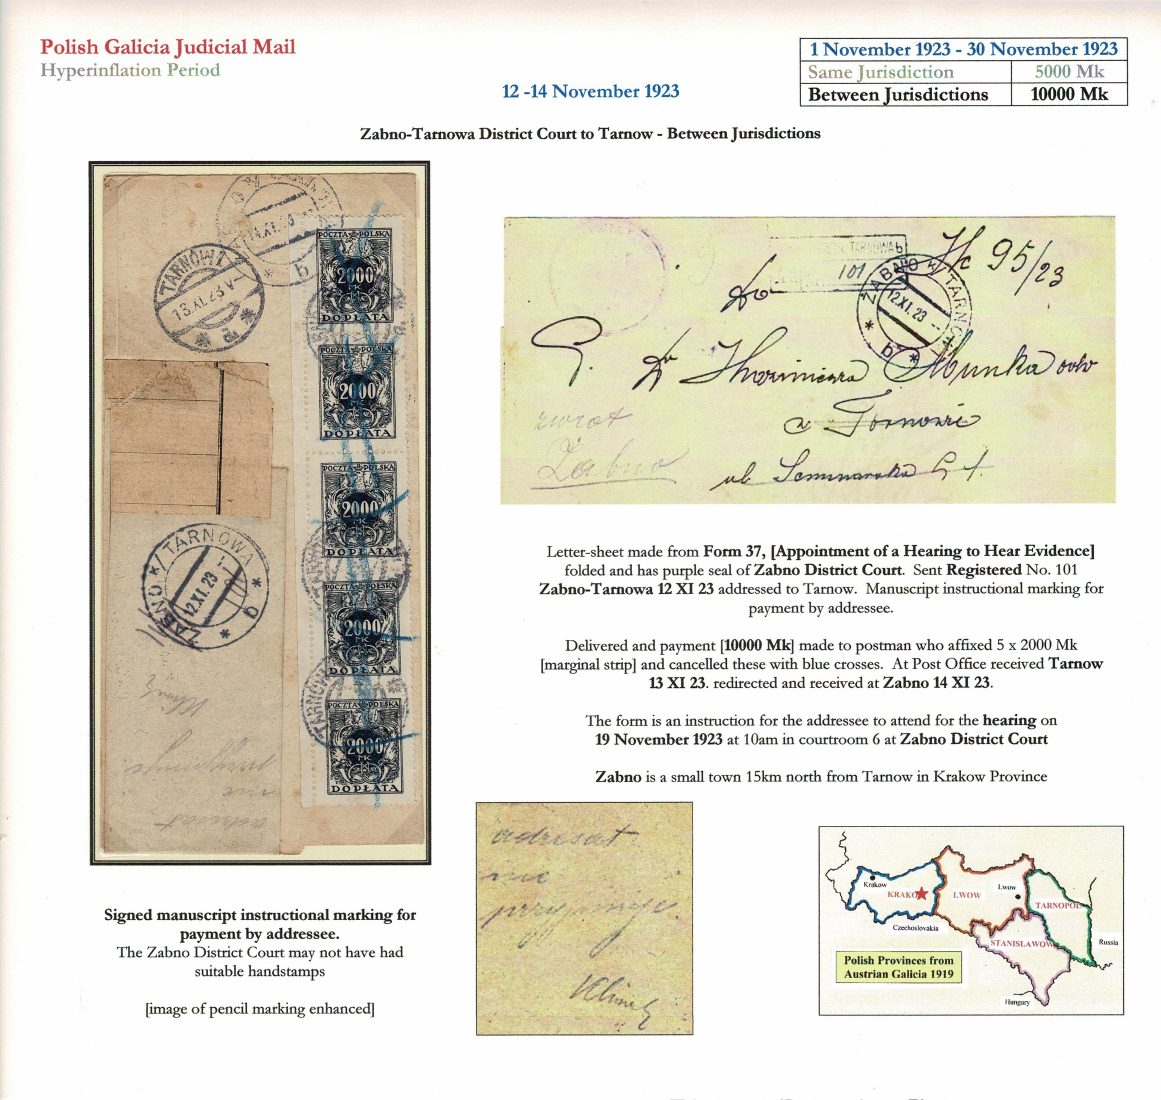 Polish Galicia Judicial Mail
Hyperinflation Period
1 November 1923 - 30 November 1923
Same Jurisdiction 5000 Mk
Between Jurisdictions 10000 Mk
12 -14 November 1923
Zabno-Tarnowa District Court to Tarnow - Between Jurisdictions
14.XI.23
b
TARNÓW 1
13.XI.23
a
POCZTA POLSKA
2000
MK
DOPŁATA
POCZTA POLSKA
2000
MK
DOPŁATA
POCZTA POLSKA
2000
MK
DOPŁATA
POCZTA POLSKA
2000
MK
DOPŁATA
POCZTA POLSKA
2000
MK
DOPŁATA
ŻABNO */ TARNOWA
12.XI.23
b
adresat
nie
przyjmuje
TARNOWA b
101
95/23
ŻABNO * TARNOWA
12.XI.23
b
Do
Dr
w Tarnowie
ul
zwrot
Żabno
Letter-sheet made from Form 37, [Appointment of a Hearing to Hear Evidence]
folded and has purple seal of Zabno District Court. Sent Registered No. 101
Zabno-Tarnowa 12 XI 23 addressed to Tarnow. Manuscript instructional marking for
payment by addressee.
Delivered and payment [10000 Mk] made to postman who affixed 5 x 2000 Mk
[marginal strip] and cancelled these with blue crosses. At Post Office received Tarnow
13 XI 23. redirected and received at Zabno 14 XI 23.
The form is an instruction for the addressee to attend for the hearing on
19 November 1923 at 10am in courtroom 6 at Zabno District Court
Zabno is a small town 15km north from Tarnow in Krakow Province
Signed manuscript instructional marking for
payment by addressee.
The Zabno District Court may not have had
suitable handstamps
[image of pencil marking enhanced]
adresat
nie
przyjmuje.
Krakow
KRAKO
LWOW
Lwow
TARNOPOL
Czechoslovakia
STANISLAWOW
Russia
Hungary
Polish Provinces from
Austrian Galicia 1919